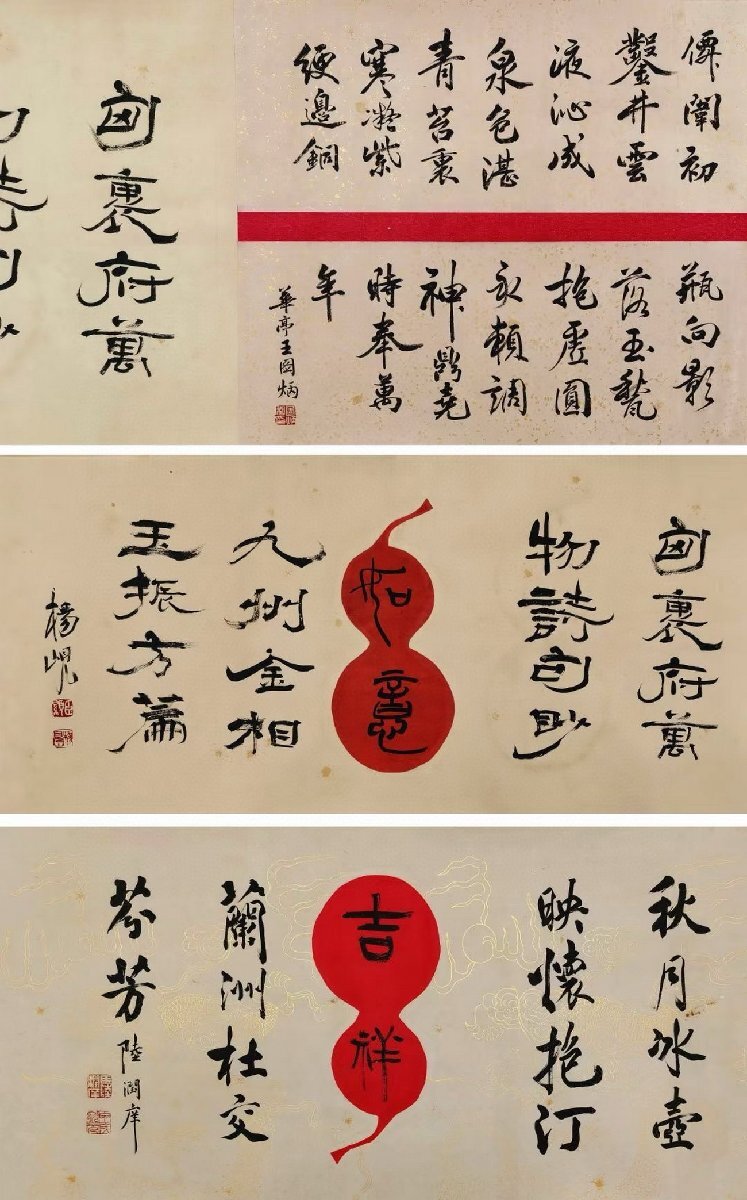 僊闈初
鑿井雲
液沁成
泉色湛
青苔裏
寒凝紫
綆邊銅
瓶向影
落玉甃
抱虛圓
永賴調
神鼎堯
時奉萬
年
華亭王圖炳
匈裏府萬
匈裏府萬
物詩句眇
如意
九州金相
玉振方篇
楊峴
秋月冰壺
映懷抱汀
吉祥
蘭洲杜交
芬芳
陸潤庠